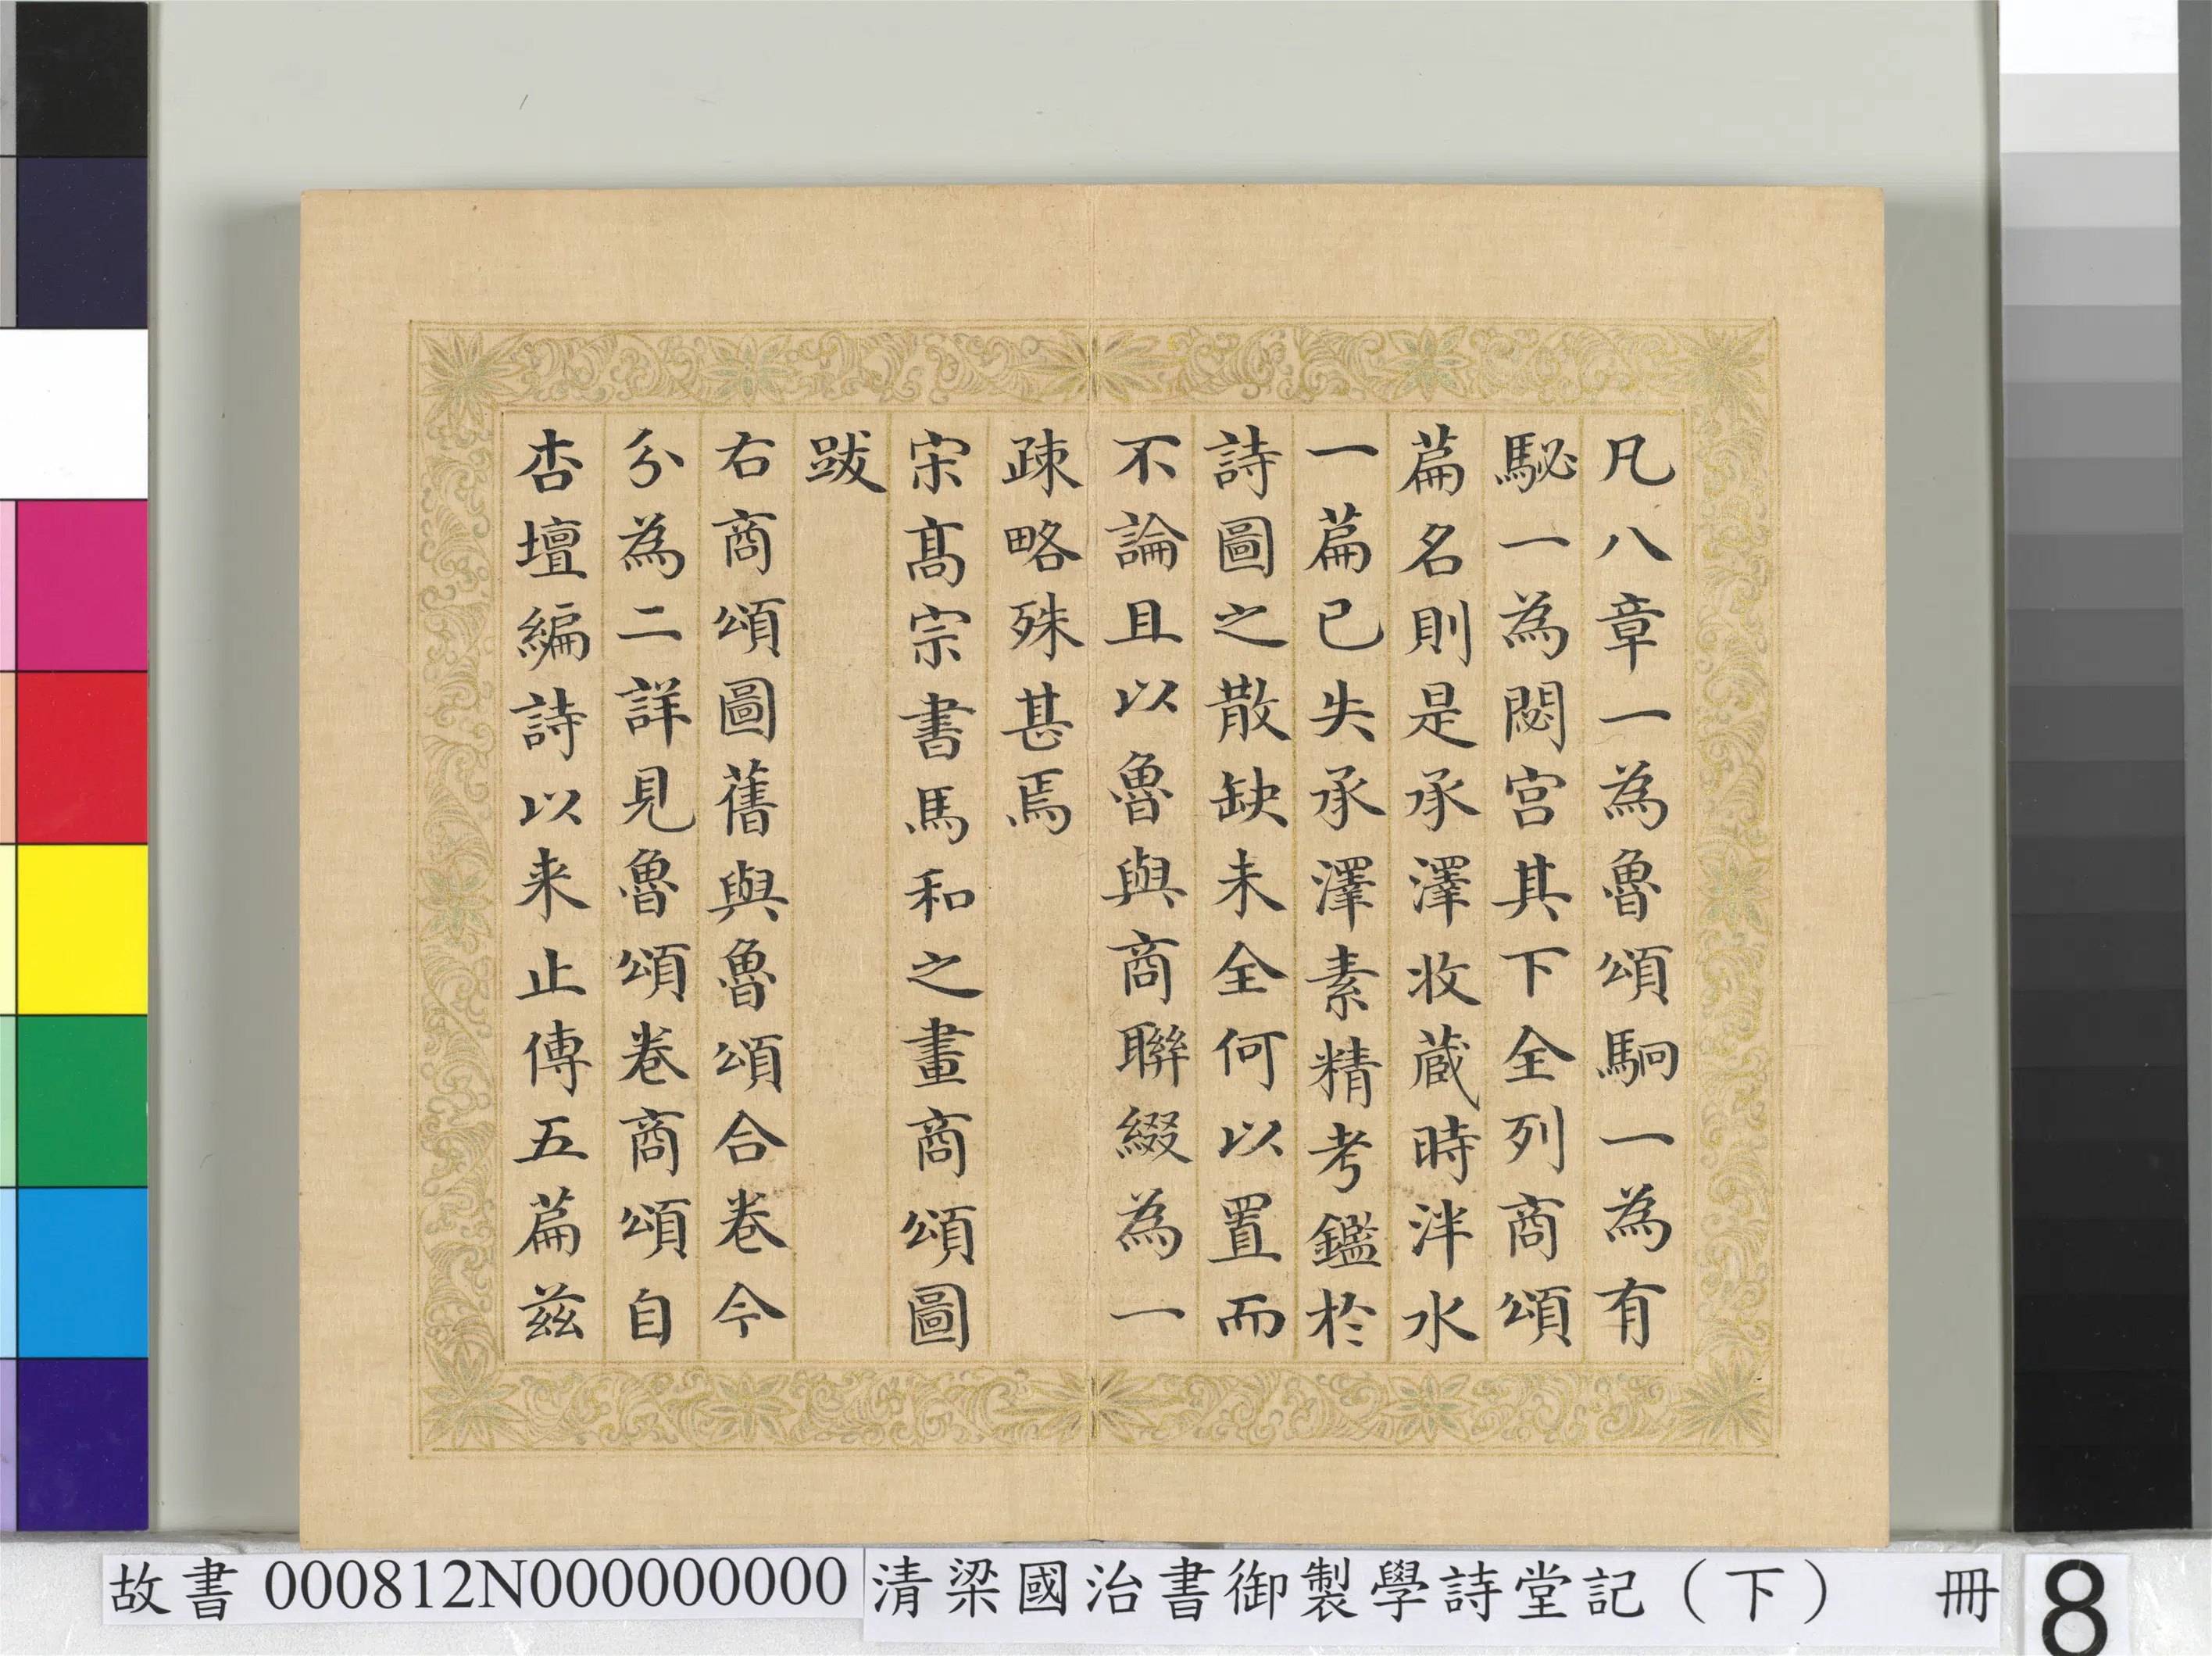 凡八章一為魯頌駉一為有
駜一為閟宮其下全列商頌
篇名則是承澤收蔵時泮水
一篇已失承澤素精考鑑於
詩圖之散缺未全何以置而
不論且以魯與商聯綴為一
疎略殊甚焉
宋髙宗書馬和之畫商頌圖
跋
右商頌圖舊與魯頌合卷今
分為二詳見魯頌卷商頌自
杏壇編詩以来止傳五篇茲
故書 000812N000000000
清梁國治書御製學詩堂記（下） 冊
8